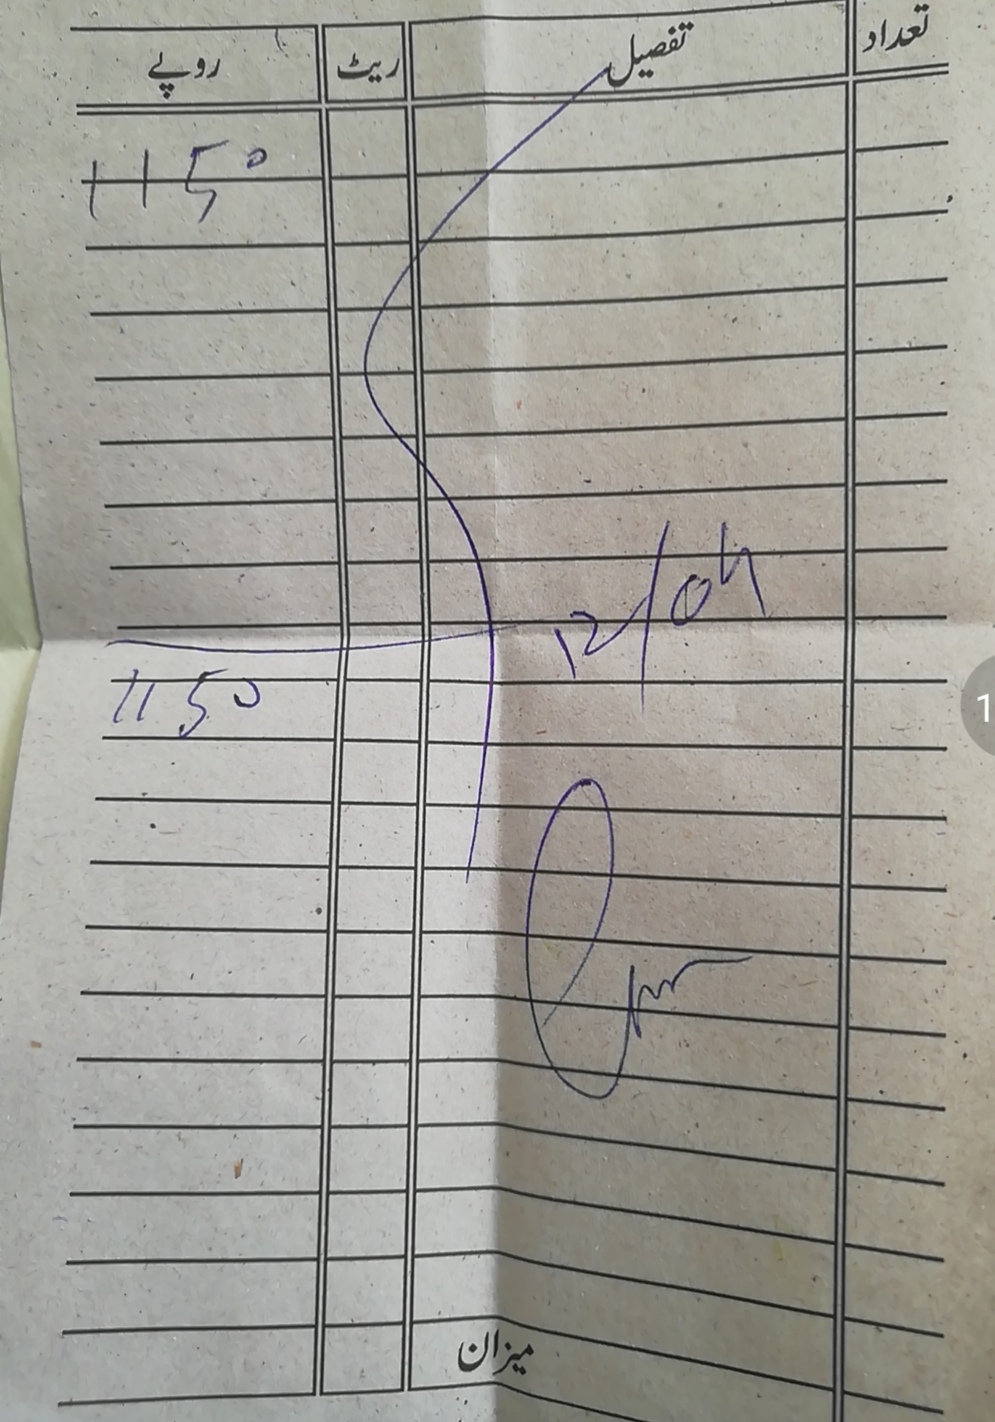 تعداد تفصیل ریٹ روپے
1150
12/04
1150
میزان
1